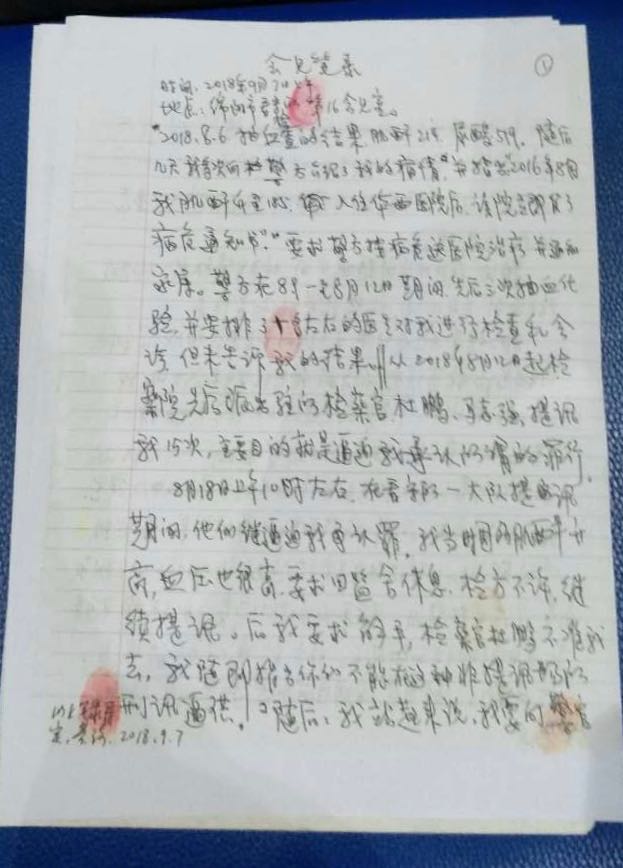 会见笔录 ①
时间:2018年9月7日上午
地点:绵阳市看守所第16会见室。
"2018.8.6 抽血查的结果肌酐219, 尿酸579, 随后
几天我多次向警方介绍了我的病情,并指出"2016年8月
我肌酐 入住华西医院后,该院立即发了
病危通知书"。要求警方按病危送医院治疗,并通知
家属。警方在8月 至8月12日期间,先后三次抽血化
验,并安排了十名左右的医生对我进行检查和会
诊,但未告诉我的结果。 从2018年8月12日起检
察院先后派出驻所检察官杜鹏、 提讯
我15次,主要目的就是逼迫我承认所谓的罪行。
8月18日上午10时左右,在看守所一大队提讯
期间,他们继续逼迫我 认罪,我当时因为肌酐升
高,血压也很高,要求回监舍休息,检方不许,继
续提讯。后我要求 ,检察官杜鹏不准我
去,我随即指出你们不能 这种
刑讯逼供。随后,我站起来说,我要向警官
以上笔录属
实。 2018.9.7